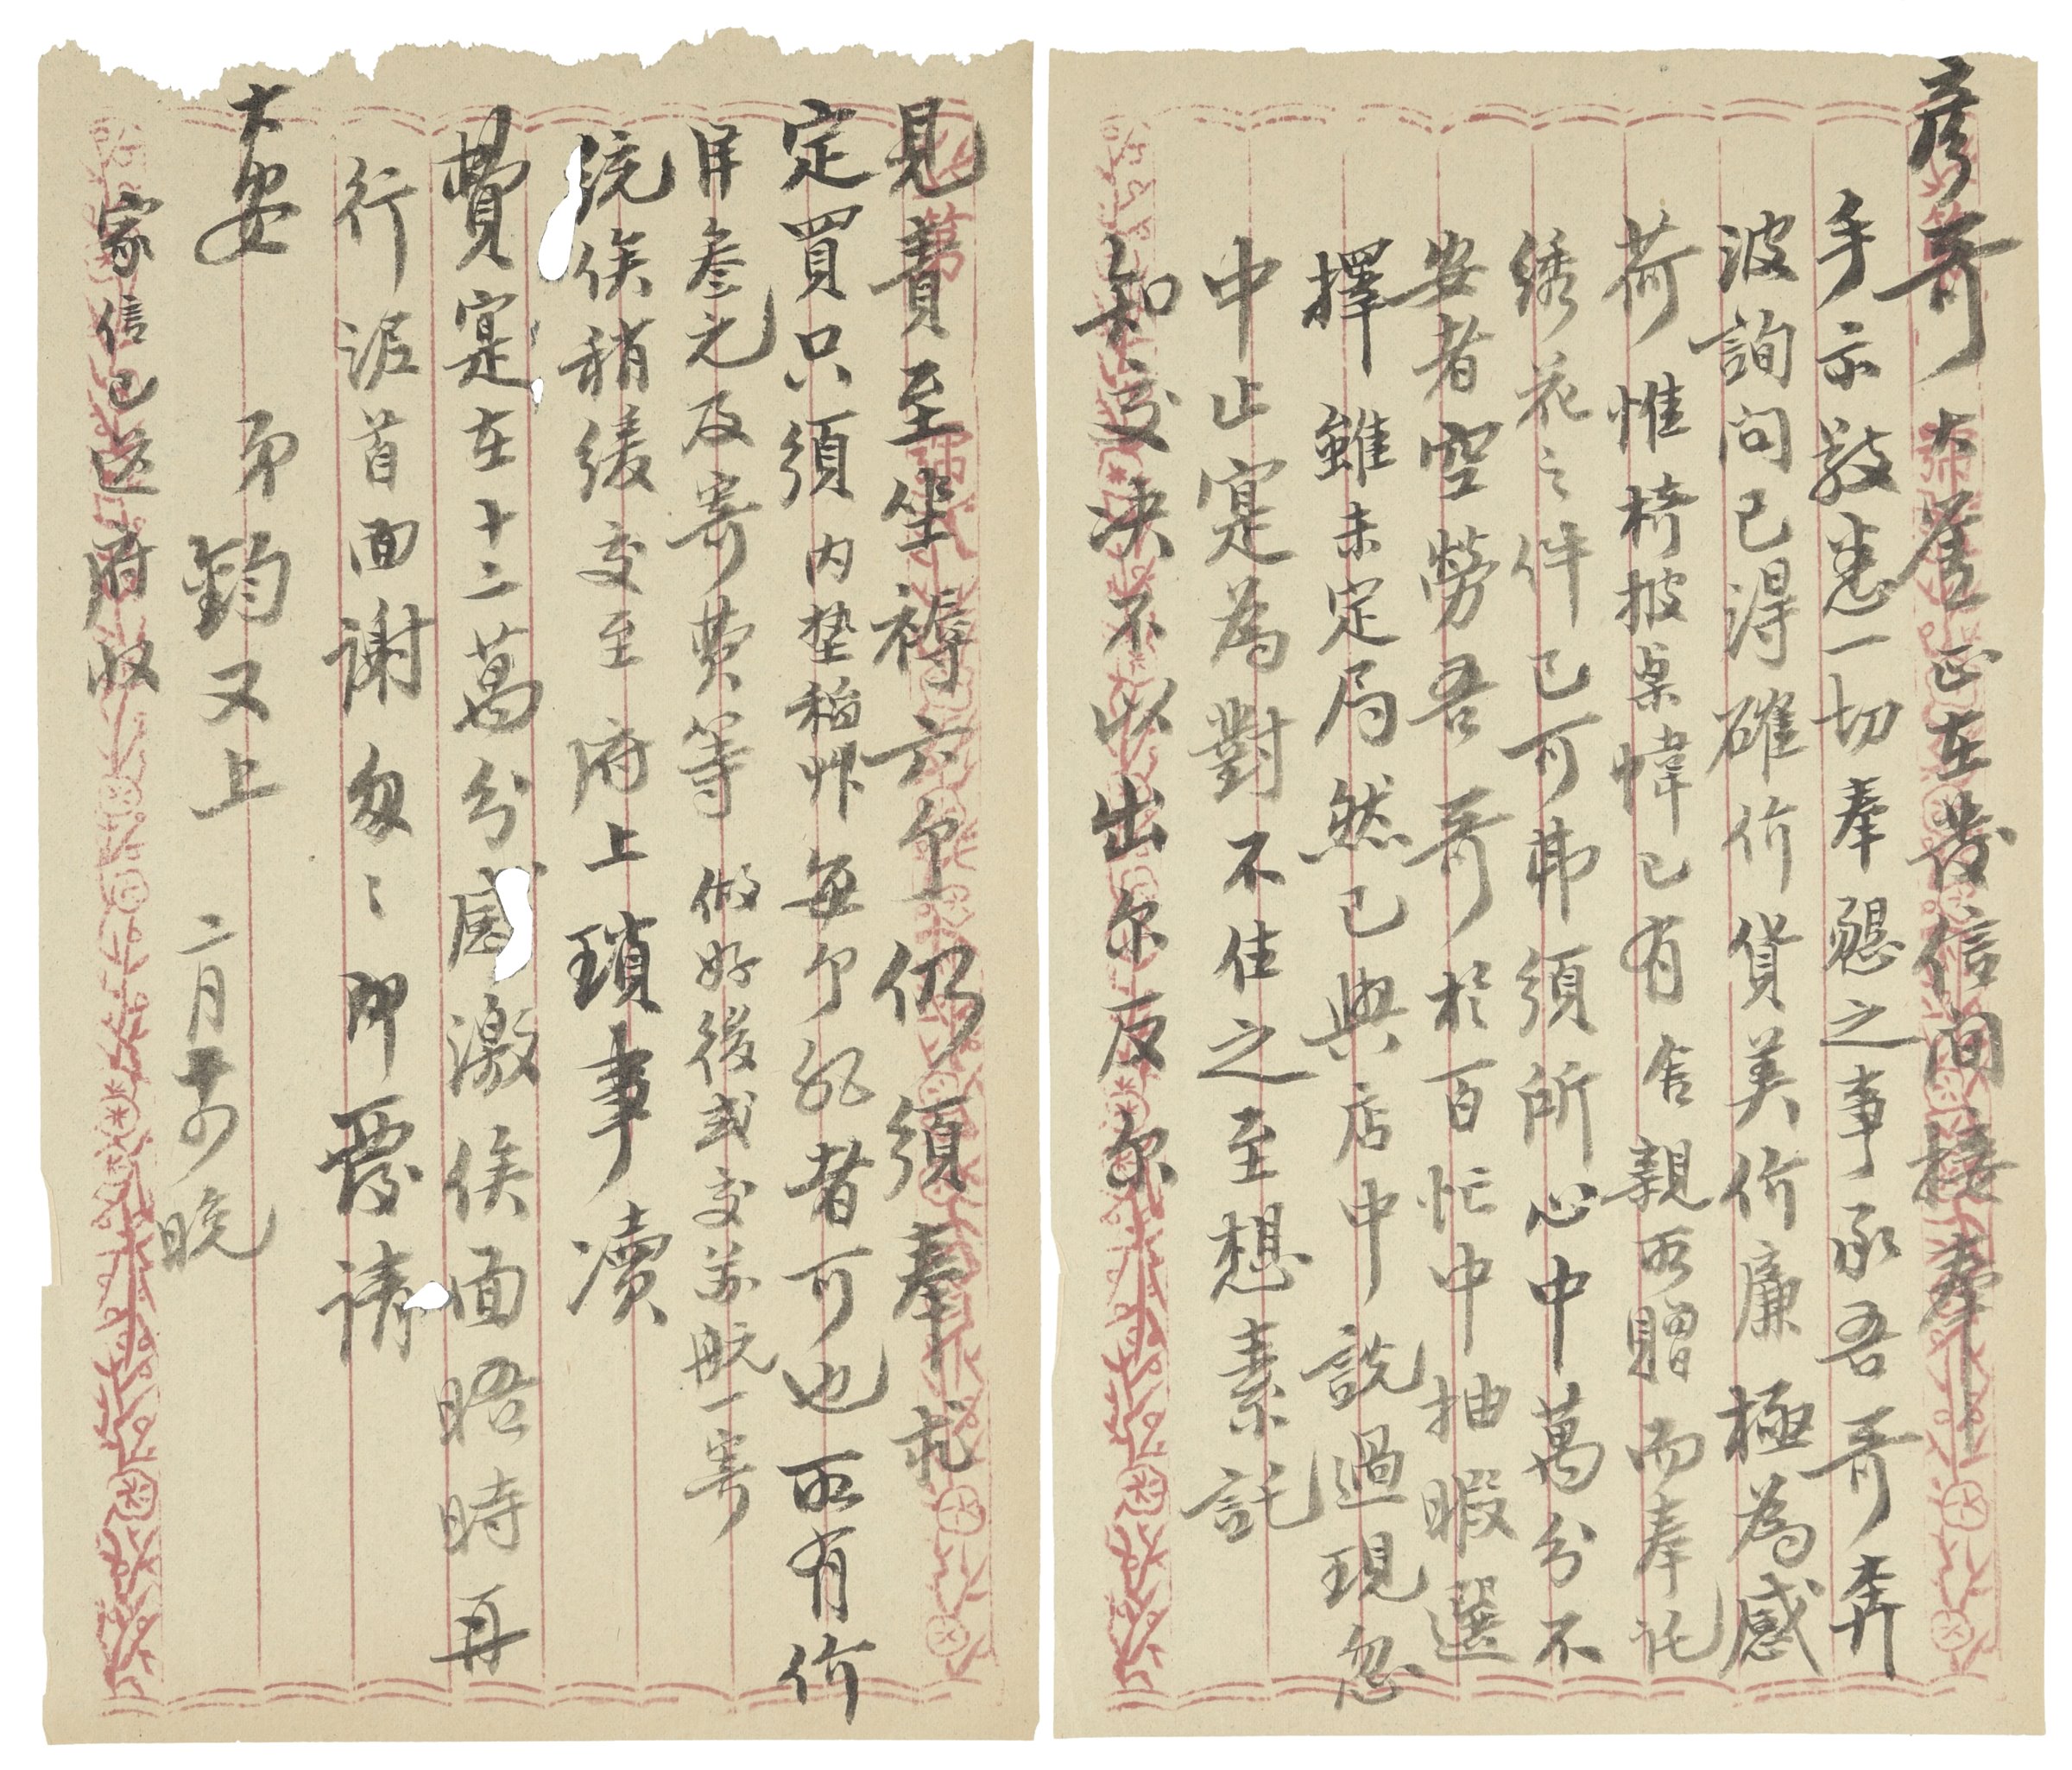 彦哥大鉴正在發信间接奉
手示敬悉一切奉懇之事承吾哥奔
波詢问已得確价貨美价廉極為感
荷惟椅披桌幃已有舍親所贈而奉託
綉花之件已可弗須所心中萬分不
安者空勞吾哥於百忙中抽暇選
擇雖未定局然已與店中説過現忽
中止寔為對不住之至想素託
知交决不以出尔反尔
見責至坐褥六个仍須奉求
定買只須内墊稻艸每个彩者可也所有价
洋叁元及寄費等做好後或交萃航一寄
統俟稍缓交至府上瑣事瀆
費寔在十二萬分感激俟面晤時再
行泥首面謝匆匕即覆請
大安
弟鈞又上
二月十の晚
家信已送府收